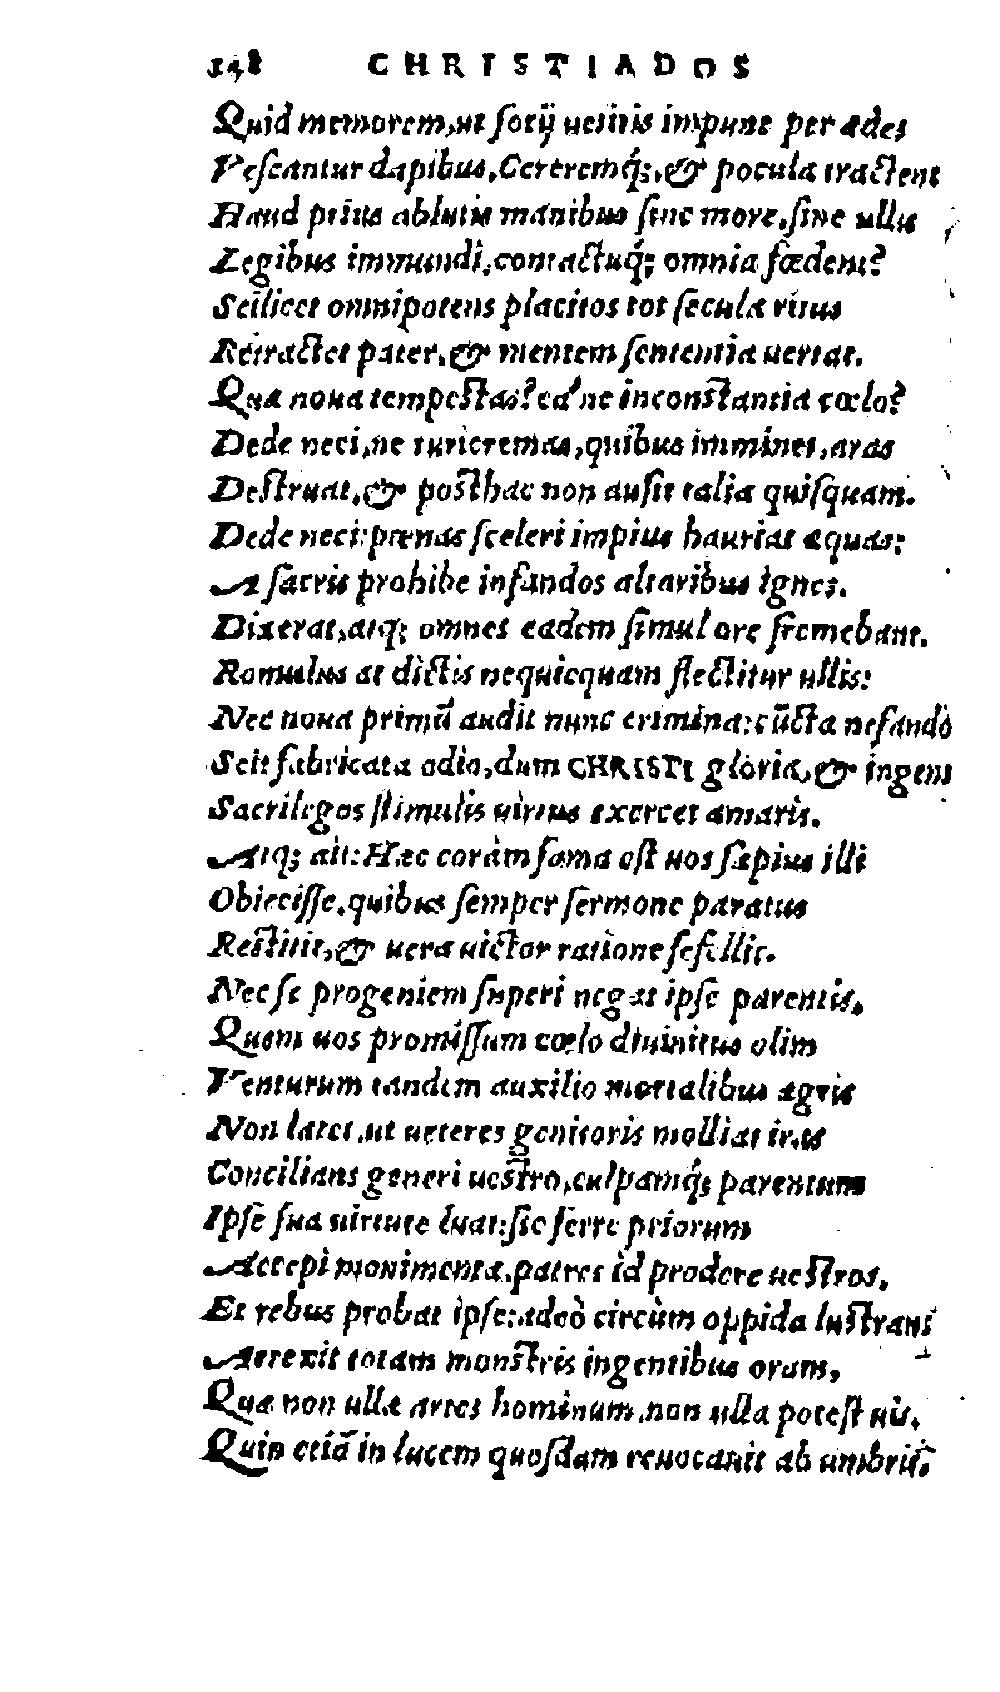 148 CHRISTIADOS
Quid memorem, ut socij uetitis impune per ædes
Vescantur dapibus, Cereremq́;, & pocula tractent
Haud prius ablutis manibus sine more, sine ullis
Legibus immundi, contactuq́; omnia fœdent?
Scilicet omnipotens placitos tot secula ritus
Retractet pater, & mentem sententia uertat.
Quæ noua tempestas? ea'ne inconstantia cœlo?
Dede neci, ne turicremas, quibus imminet, aras
Destruat, & posthac non ausit talia quisquam.
Dede neci: pœnas sceleri impius hauriat æquas:
A sacris prohibe infandos altaribus ignes.
Dixerat, atq; omnes eadem simul ore fremebant.
Romulus at dictis nequicquam flectitur ullis:
Nec noua primū audit nunc crimina: cūcta nefando
Scit fabricata odio, dum CHRISTI gloria, & ingens
Sacrilegos stimulis uirtus exercet amaris.
Atq; ait: Hæc coràm fama est uos sæpius illi
Obiecisse, quibus semper sermone paratus
Restitit, & uera uictor ratione fefellit.
Nec se progeniem superi negat ipse parentis,
Quem uos promissum cœlo diuinitus olim
Venturum tandem auxilio mortalibus ægris
Non latet, ut ueteres genitoris molliat iras
Concilians generi uestro, culpamq́; parentum
Ipse sua uirtute luat: sic ferre priorum
Accepi monimenta, patres id prodere uestros.
Et rebus probat ipse: adeò circùm oppida lustrans
Arrexit totam monstris ingentibus oram,
Quæ non ullæ artes hominum, non ulla potest uis.
Quin etiā in lucem quosdam reuocauit ab umbris.